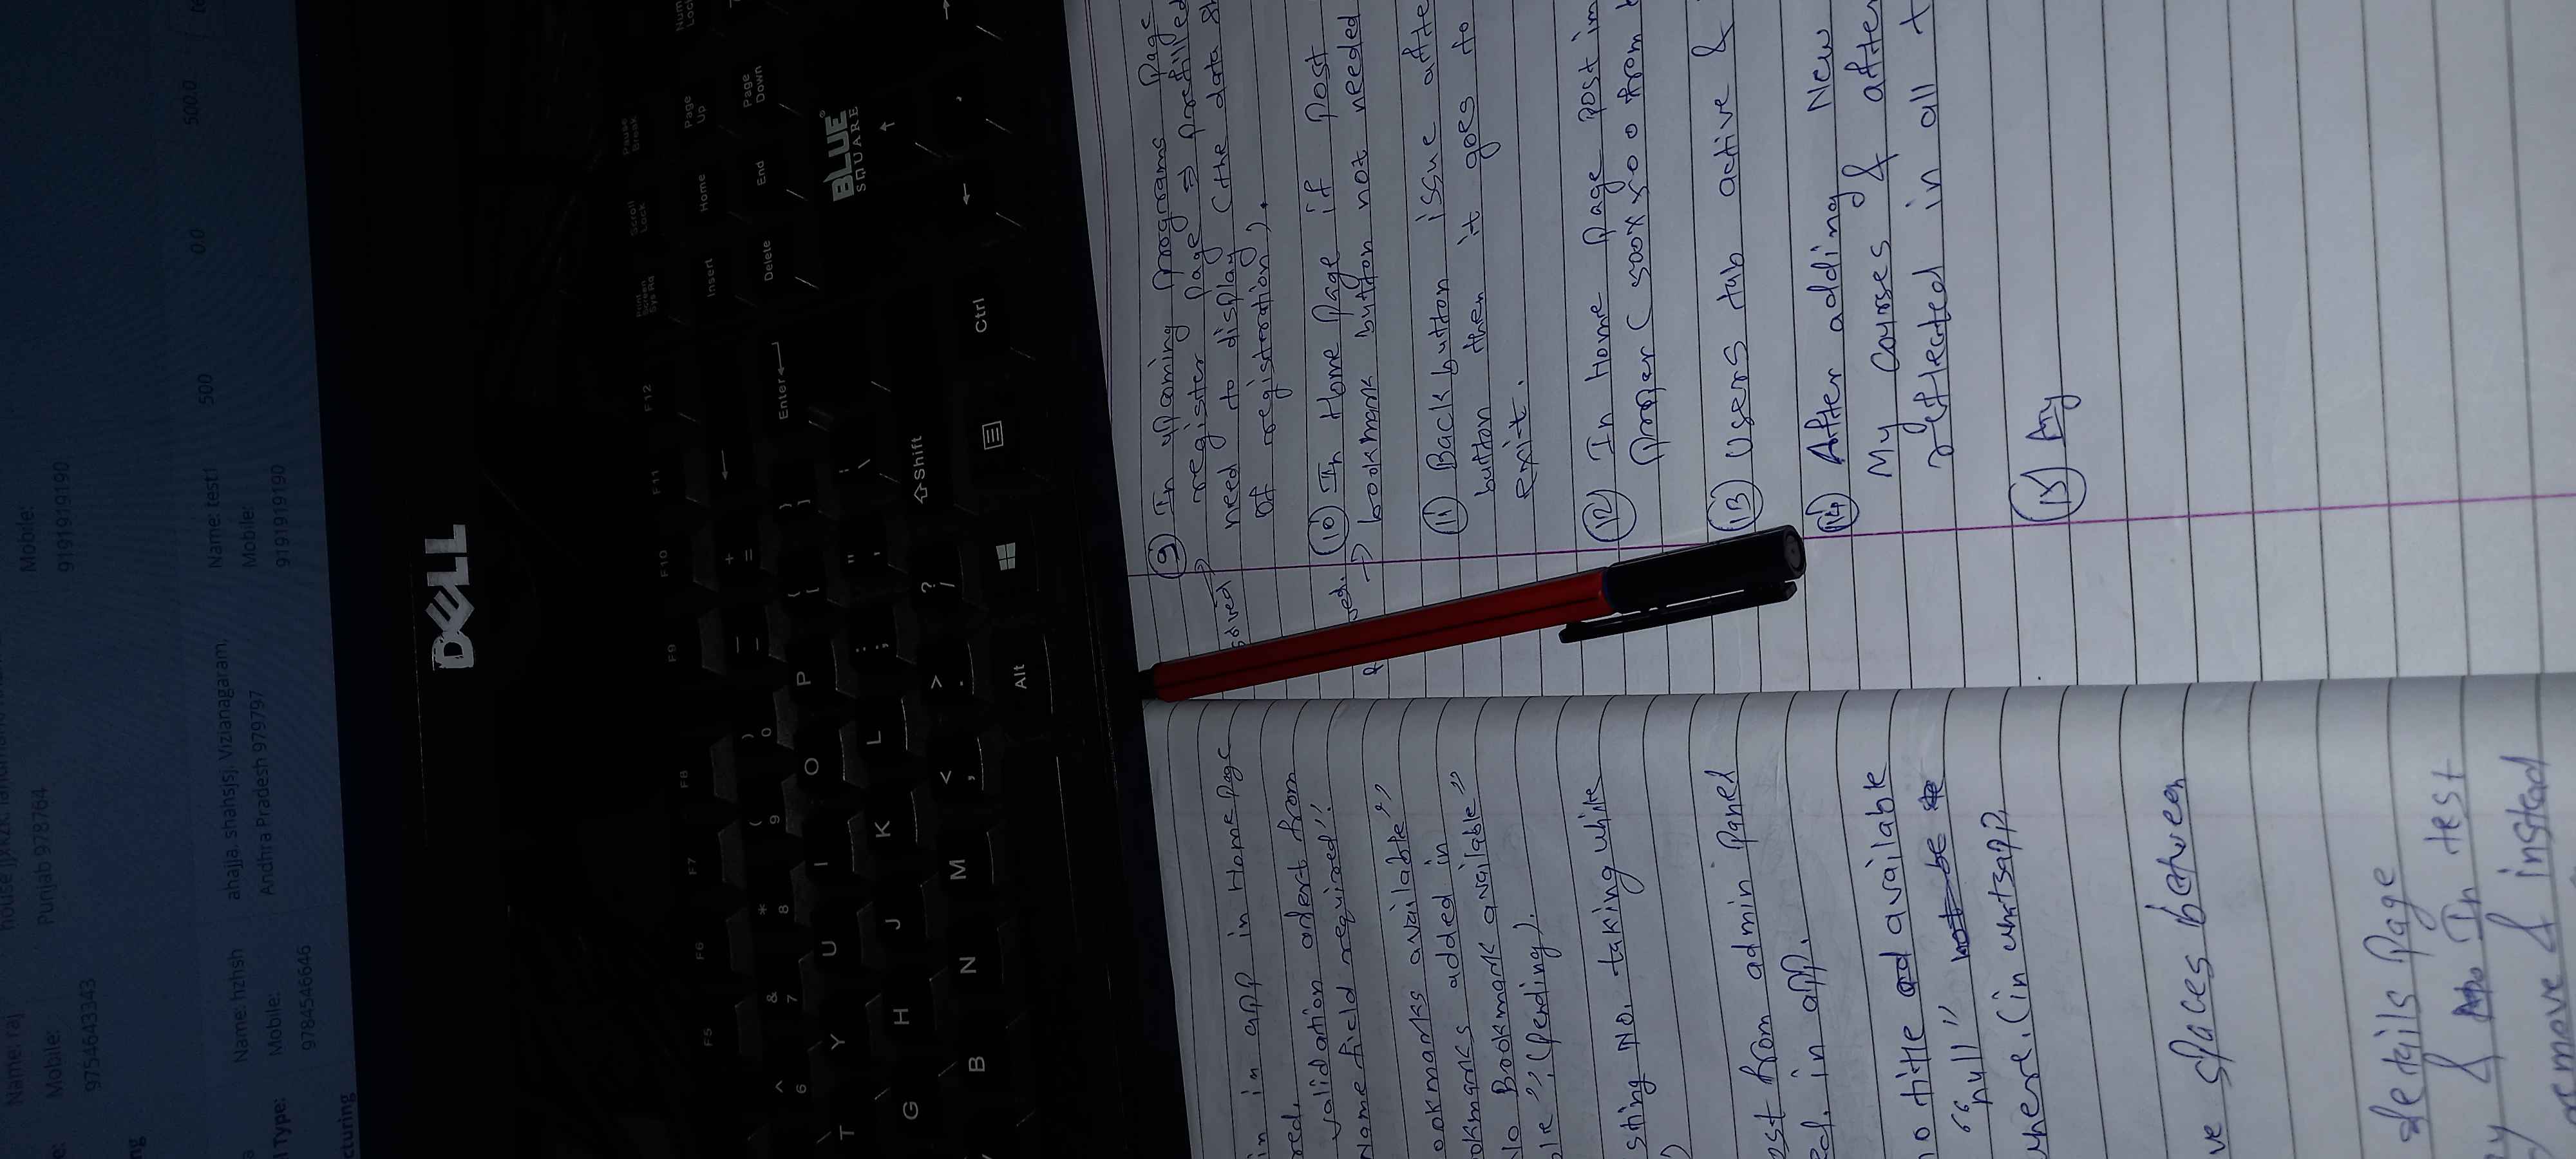 Name: raj
Mobile:
9754643343
Punjab 978764
Mobile:
9191919190
ng
a
Name: hzhsh
ahajja, shahsjsj, Vizianagaram,
Name: test1
500
0.0
500.0
l Type:
Mobile:
Andhra Pradesh 979797
Mobile:
9784546646
9191919190
cturing
DELL
F5 F6 F7 F8 F9 F10 F11 F12 Print Screen Sys Rq Scroll Lock Pause Break
^ 6 & 7 * 8 ( 9 ) 0 — - + = Insert Home Page Up Num Lock
T Y U I O P { [ } ] Enter Delete End Page Down
G H J K L : ; " ' | \ BLUE SQUARE
B N M < , > . ? / Shift
Alt Ctrl
in in app in Home Page
red.
validation alert from
Name field required"!
ookmarks available"
okmarks added in
No Bookmark available"
ble"; (Pending).
sting No. taking white
ost from admin Panel
ed. in app.
no title available
"null" not be
where. (in whatsapp.
ve spaces between
details Page
y & In test
remove & instead
9 In upcoming programs Page
register Page ⇒ prefilled
solved
need to display (the data sh
of registeration).
ved.
10 In Home Page if Post
→ bookmark button not needed
11 Back button issue afte
button then it goes to
exit.
12 In Home Page post im
proper (500x500 from
13 Users tab active &
14 After adding New
My Courses & after
reflected in all t
15